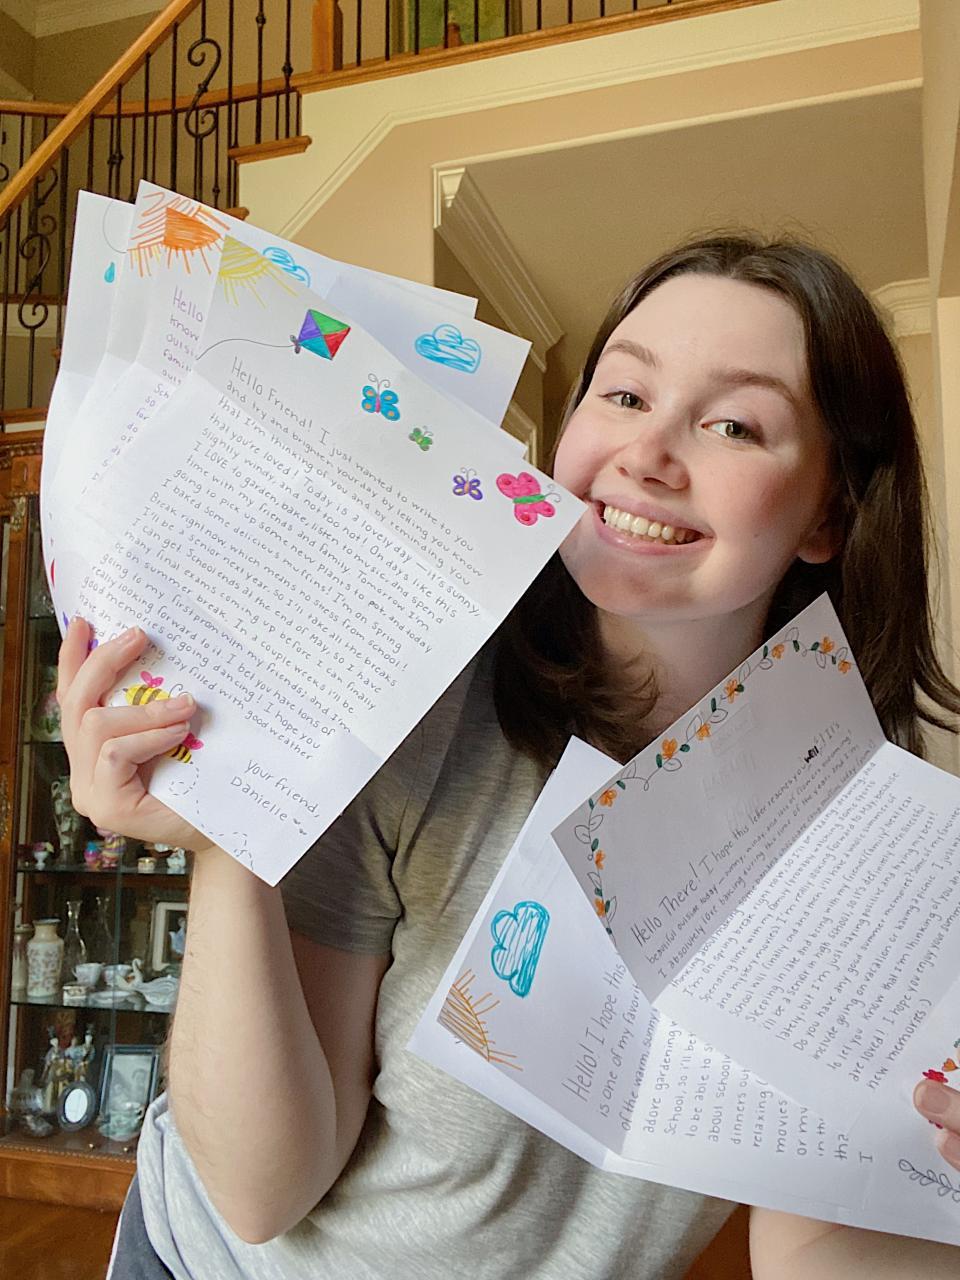 Hello
know
outsi
famil
Hello Friend! I just wanted to write to you
and try and brighten your day by letting you know
that I'm thinking of you and by reminding you
that you're loved! Today is a lovely day — it's sunny,
slightly windy, and not too hot! On days like this
I LOVE to garden, bake, listen to music, and spend
time with my friends and family. Tomorrow I'm
going to pick up some new plants to pot and today
I baked some delicious muffins! I'm on Spring
Break right now which means no stress from school!
I'll be a senior next year, so I'll take all the breaks
I can get. School ends at the end of May, so I have
many final exams coming up before I can finally
be on summer break. In a couple weeks I'll be
going to my first prom with my friends, and I'm
really looking forward to it. I bet you have tons of
good memories of going dancing! I hope you
have an day filled with good weather
your friend,
Danielle
Hello There! I hope this letter reaches you well! It's
beautiful outside today - sunny, windy, and lots of flowers
I absolutely love baking during this time of the year and I'm
thinking about making some banana chocolate chip muffins today
I'm on spring break right now, so I'll be relaxing, drawing, and
spending time with my family (probably watching some sports
and mystery movies). I'm really looking forward to May, because
school will finally end and then I'll have a whole summer of
sleeping in late and being with my friends/family!
I'll be a senior in high school, so it's definitely been stressful
lately, but I'm just staying positive and trying my best!
Do you have any good summer memories? Some of my favorites
include going on vacation or having a picnic. I just wanted
to let you know that I'm thinking of you and
are loved! I hope you enjoy your summer
new memories :)
Hello! I hope this
is one of my favori
of the warm, sunny
adore gardening
School, so I'll be
to be able to s
about school
dinners ou
relaxing (
movies
or my
in th
tha
I